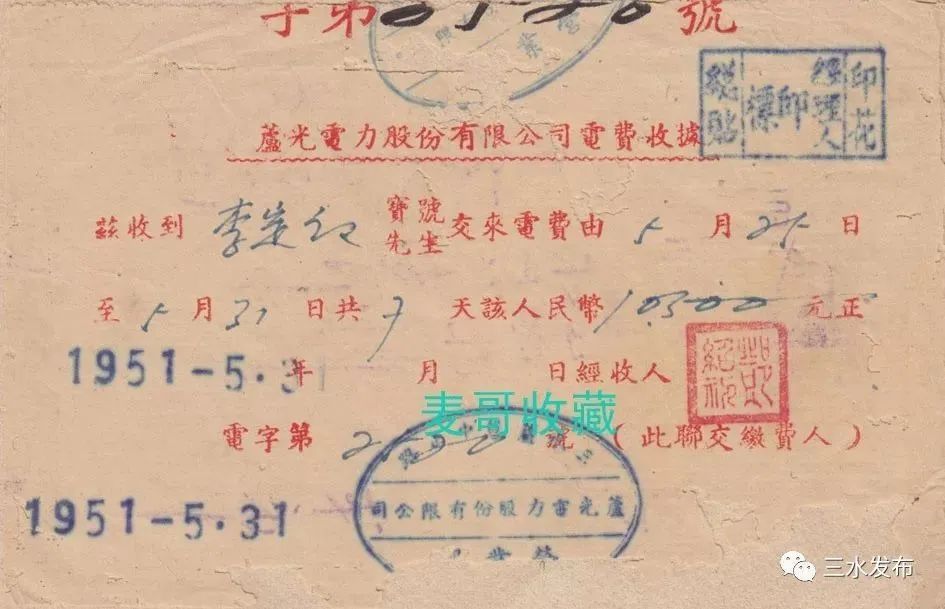 字第 號
印花 經理人印 總貼
蘆光電力股份有限公司電費收據
茲收到 李 寶號先生 交來電費由 5 月 25 日
至 5 月 31 日共 7 天該人民幣 10300 元正
1951-5.31 年 月 日經收人
麦哥收藏
電字第 號 (此聯交繳費人)
蘆光電力股份有限公司
營業
1951-5.31
三水发布